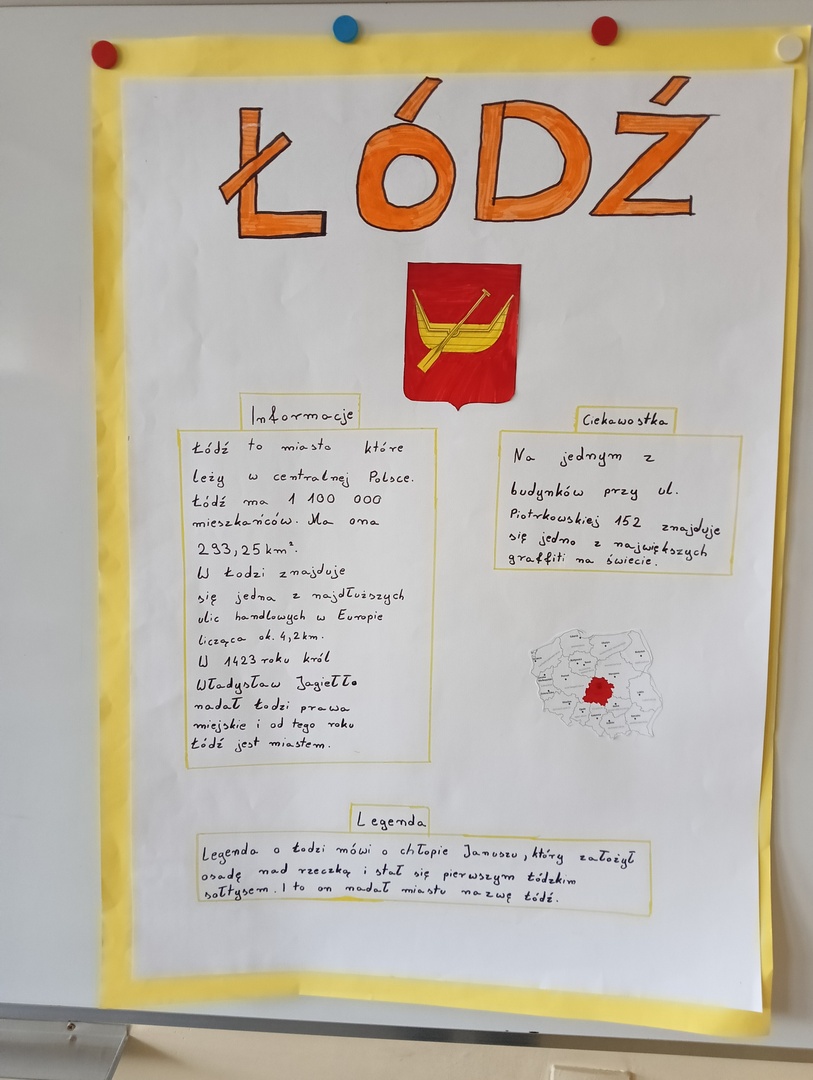 ŁÓDŹ
Informacje
Łódź to miasto które
leży w centralnej Polsce.
Łódź ma 1 100 000
mieszkańców. Ma ona
293,25 km².
W Łodzi znajduje
się jedna z najdłuższych
ulic handlowych w Europie
licząca ok. 4,2km.
W 1423 roku król
Władysław Jagiełło
nadał Łodzi prawa
miejskie i od tego roku
Łódź jest miastem.
Ciekawostka
Na jednym z
budynków przy ul.
Piotrkowskiej 152 znajduje
się jedno z największych
graffiti na świecie.
Legenda
Legenda o Łodzi mówi o chłopie Januszu, który założył
osadę nad rzeczką i stał się pierwszym łódzkim
sołtysem. I to on nadał miastu nazwę Łódź.